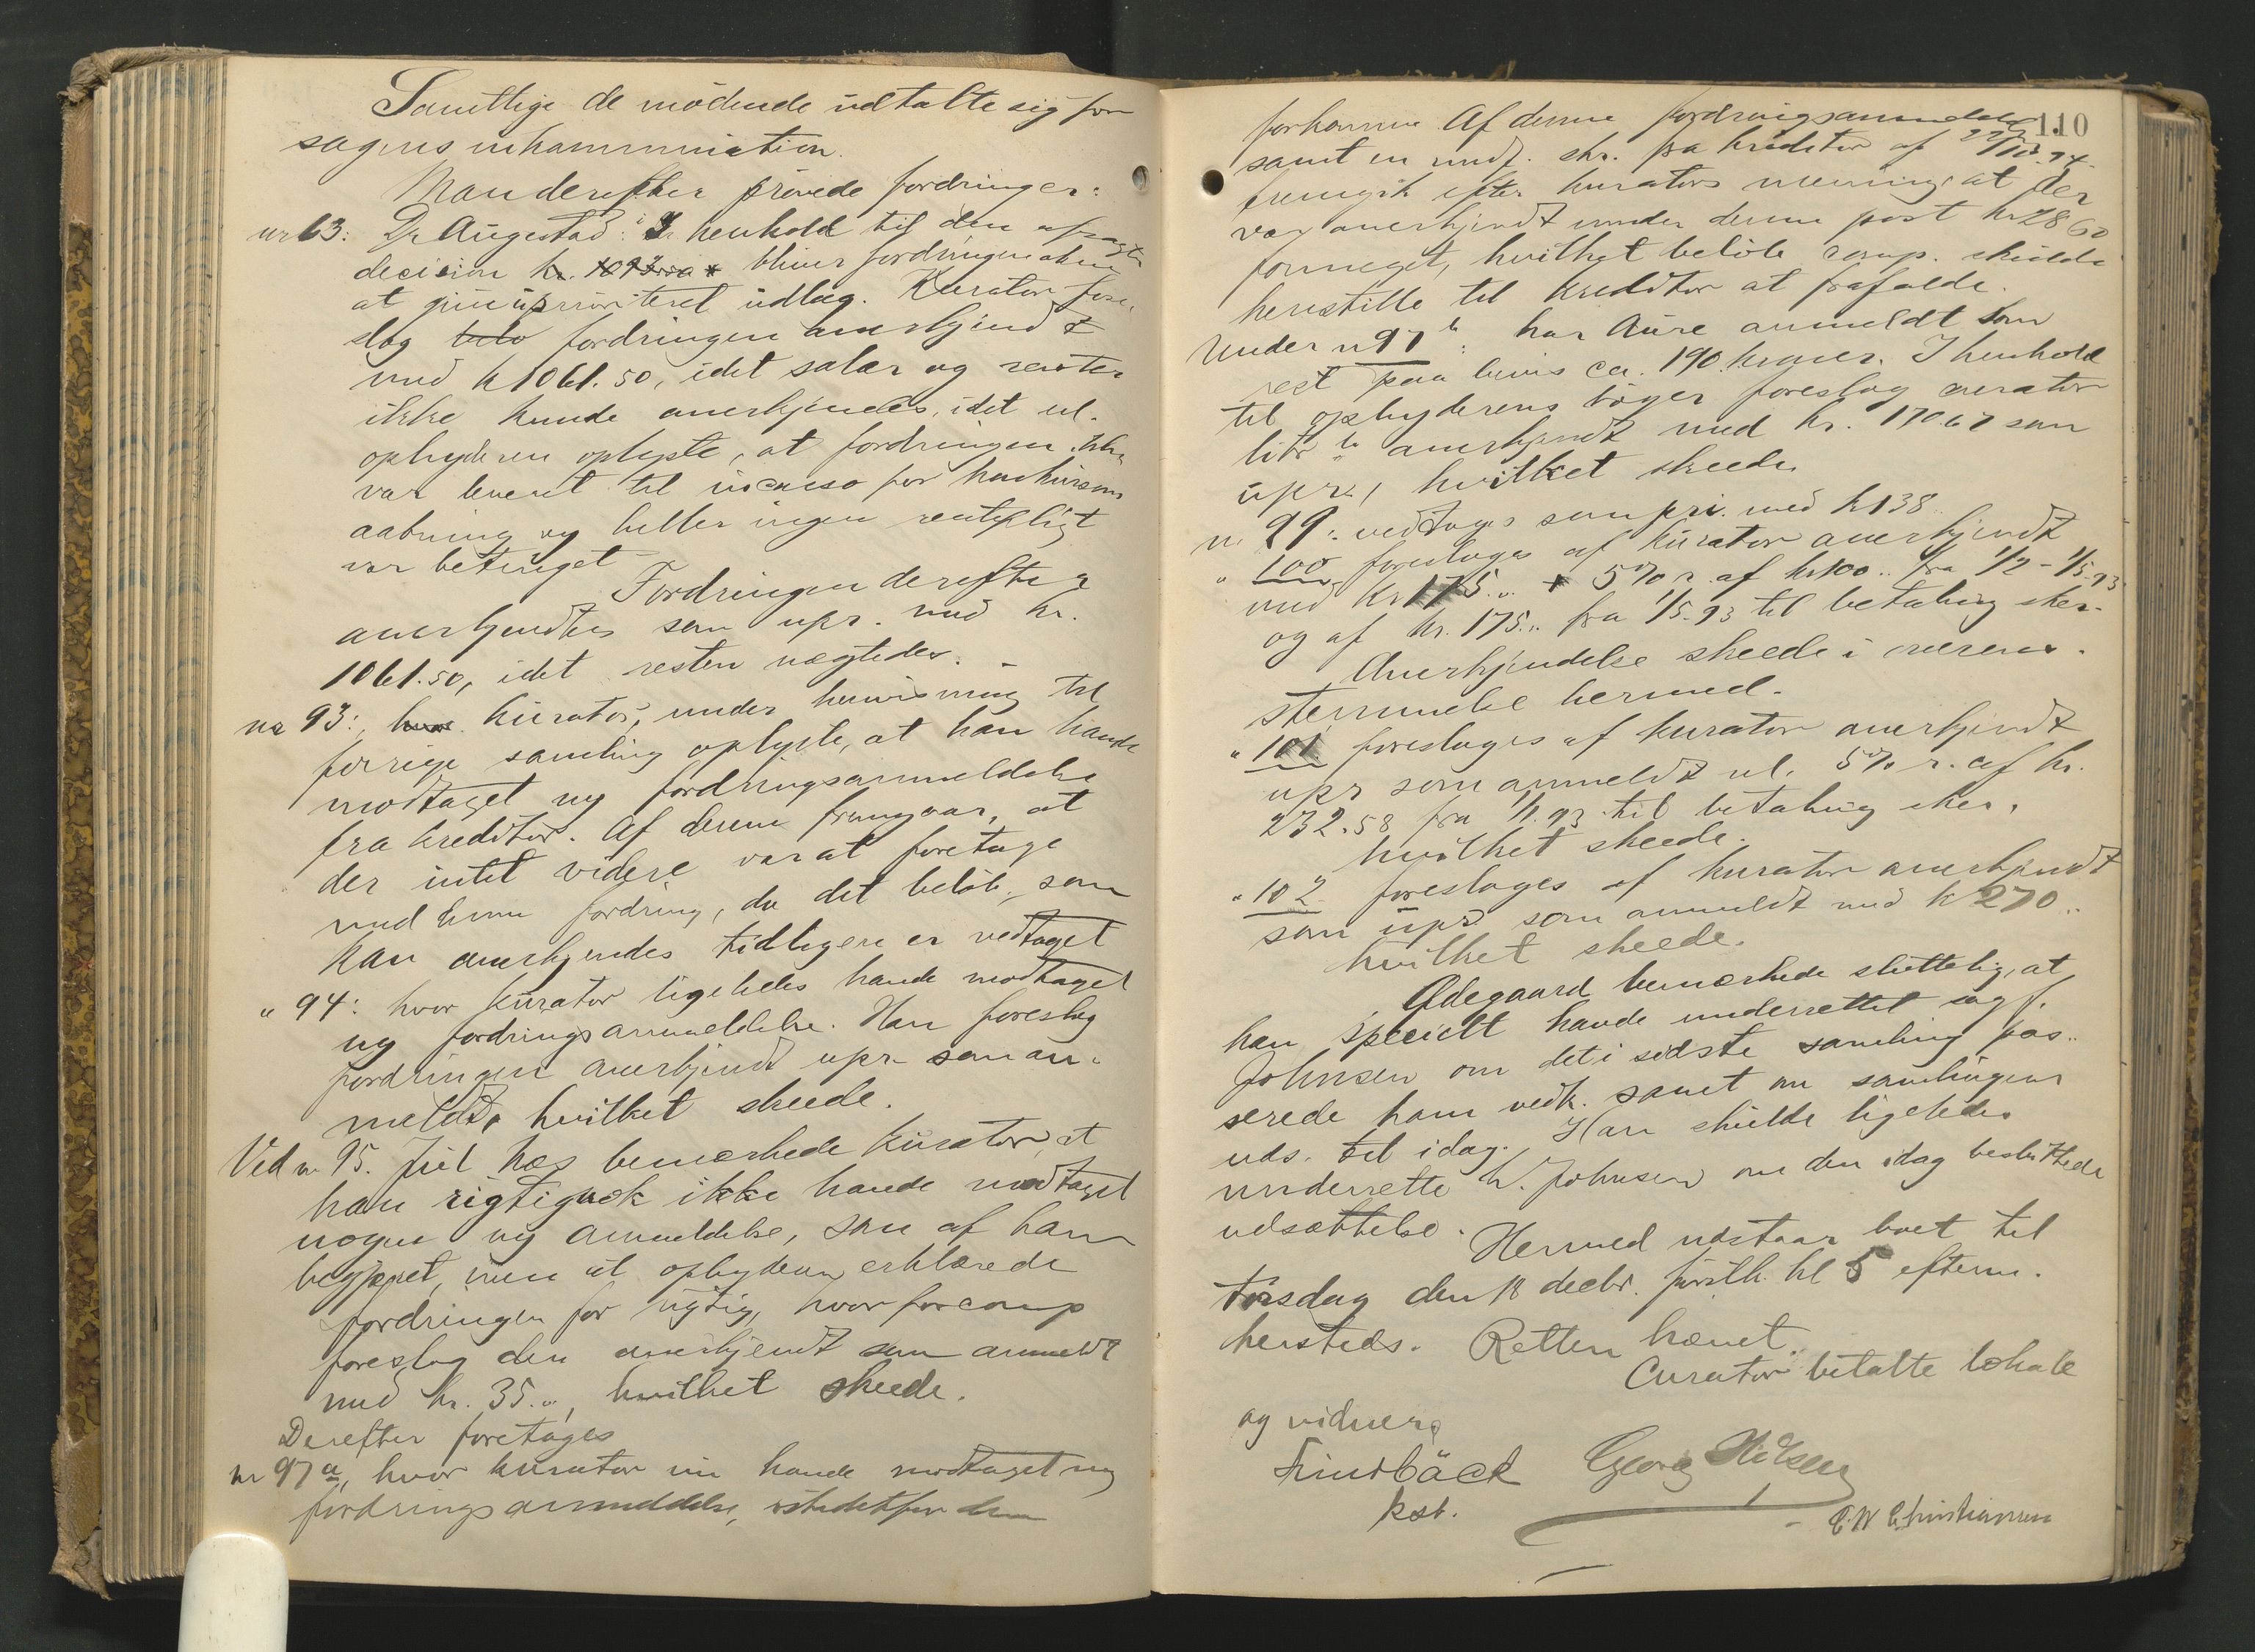 Samtlige de mödende udtalte sig for
sagens inkammination.
Man derefter prövede fordringer:
nr 63: Dr Augestad: I henhold til den afsagte
decision bliver fordringen alene
at give uprioriteret udlæg. Kurator fore-
slog fordringen anerkjendt
med kr 1061.50, idet salær og renter
ikke kunde anerkjendes, idet
opbyderen oplyste, at fordringen ikke
var leveret til incasso för konkursens
aabning og heller ingen rentepligt
var betinget
Fordringen derefter
anerkjendtes som upr. med kr.
1061.50, idet resten nægtedes. -
nr 93: Kurator, under henvisning til
forrige samling oplyste, at han havde
modtaget ny fordringsanmeldelse
fra kreditor. Af denne fremgaar, at
der intet videre var at foretage
med denne fordring, da det belöb, som
kan anerkjendes tidligere er vedtaget
" 94: hvor kurator ligeledes havde modtaget
ny fordringsanmeldelse. Han foreslog
fordringen anerkjendt upr. som an-
meldt, hvilket skeede.
Ved nr 95. Juel Næs bemærkede kurator, at
han rigtignok ikke havde modtaget
nogen ny anmeldelse, som af ham
begjæret, men at opbyderen erklærede
fordringen for rigtig, hvorfor comp
foreslog den anerkjendt som anmeldt
med kr. 35.", hvilket skeede.
Derefter foretages
nr 97 a, hvor kurator nu havde modtaget ny
fordringsanmeldelse, istedetfor den
110
forkomne. Af denne fordringsanmeldelse
samt en skr. fra kreditor af 22/10. 94
fremgik efter kurators mening at der
var anerkjendt under denne post kr 28 60
formeget, hvilket belöb comp. skulde
henstille til kreditor at frafalde.
Under nr 97 b: har Aure anmeldt som
rest paa bevis ca. 190 kroner. I henhold
til opbyderens böger foreslog curator
litr b anerkjendt med kr. 170.67 som
upr., hvilket skeede
nr 99: vedtoges som pri. med kr 138
" 100 foresloges af kurator anerkjendt
med kr 175.. + 5% r. af kr 100.. fra 1/2 - 1/5.93
og af kr. 175.. fra 1/5-93 til betaling sker.
Anerkjendelse skeede i overens-
stemmelse hermed.
" 101 foresloges af kurator anerkjendt
upr som anmeldt 5% r. af kr.
232.58 fra 1/1.93 til betaling sker,
hvilket skeede.
" 102 foresloges af kurator anerkjendt
som upr som anmeldt med kr 270..
hvilket skeede.
Ødegaard bemærkede sluttelig, at
han specielt havde underrettet sagf.
Johnsen om det i sidste samling pas-
serede ham vedk. samt om samlingens
uds. til idag. Han skulde ligeledes
underrette W. Johnsen om den idag besluttede
udsættelse. Hermed udstaar boet til
tirsdag den 18 decbr. förstk. kl 5 efterm.
hersteds. Retten hævet
Curator betalte lokale
og vidner.
Lindbäck Georg Nilsen
kst. C. W Christiansen